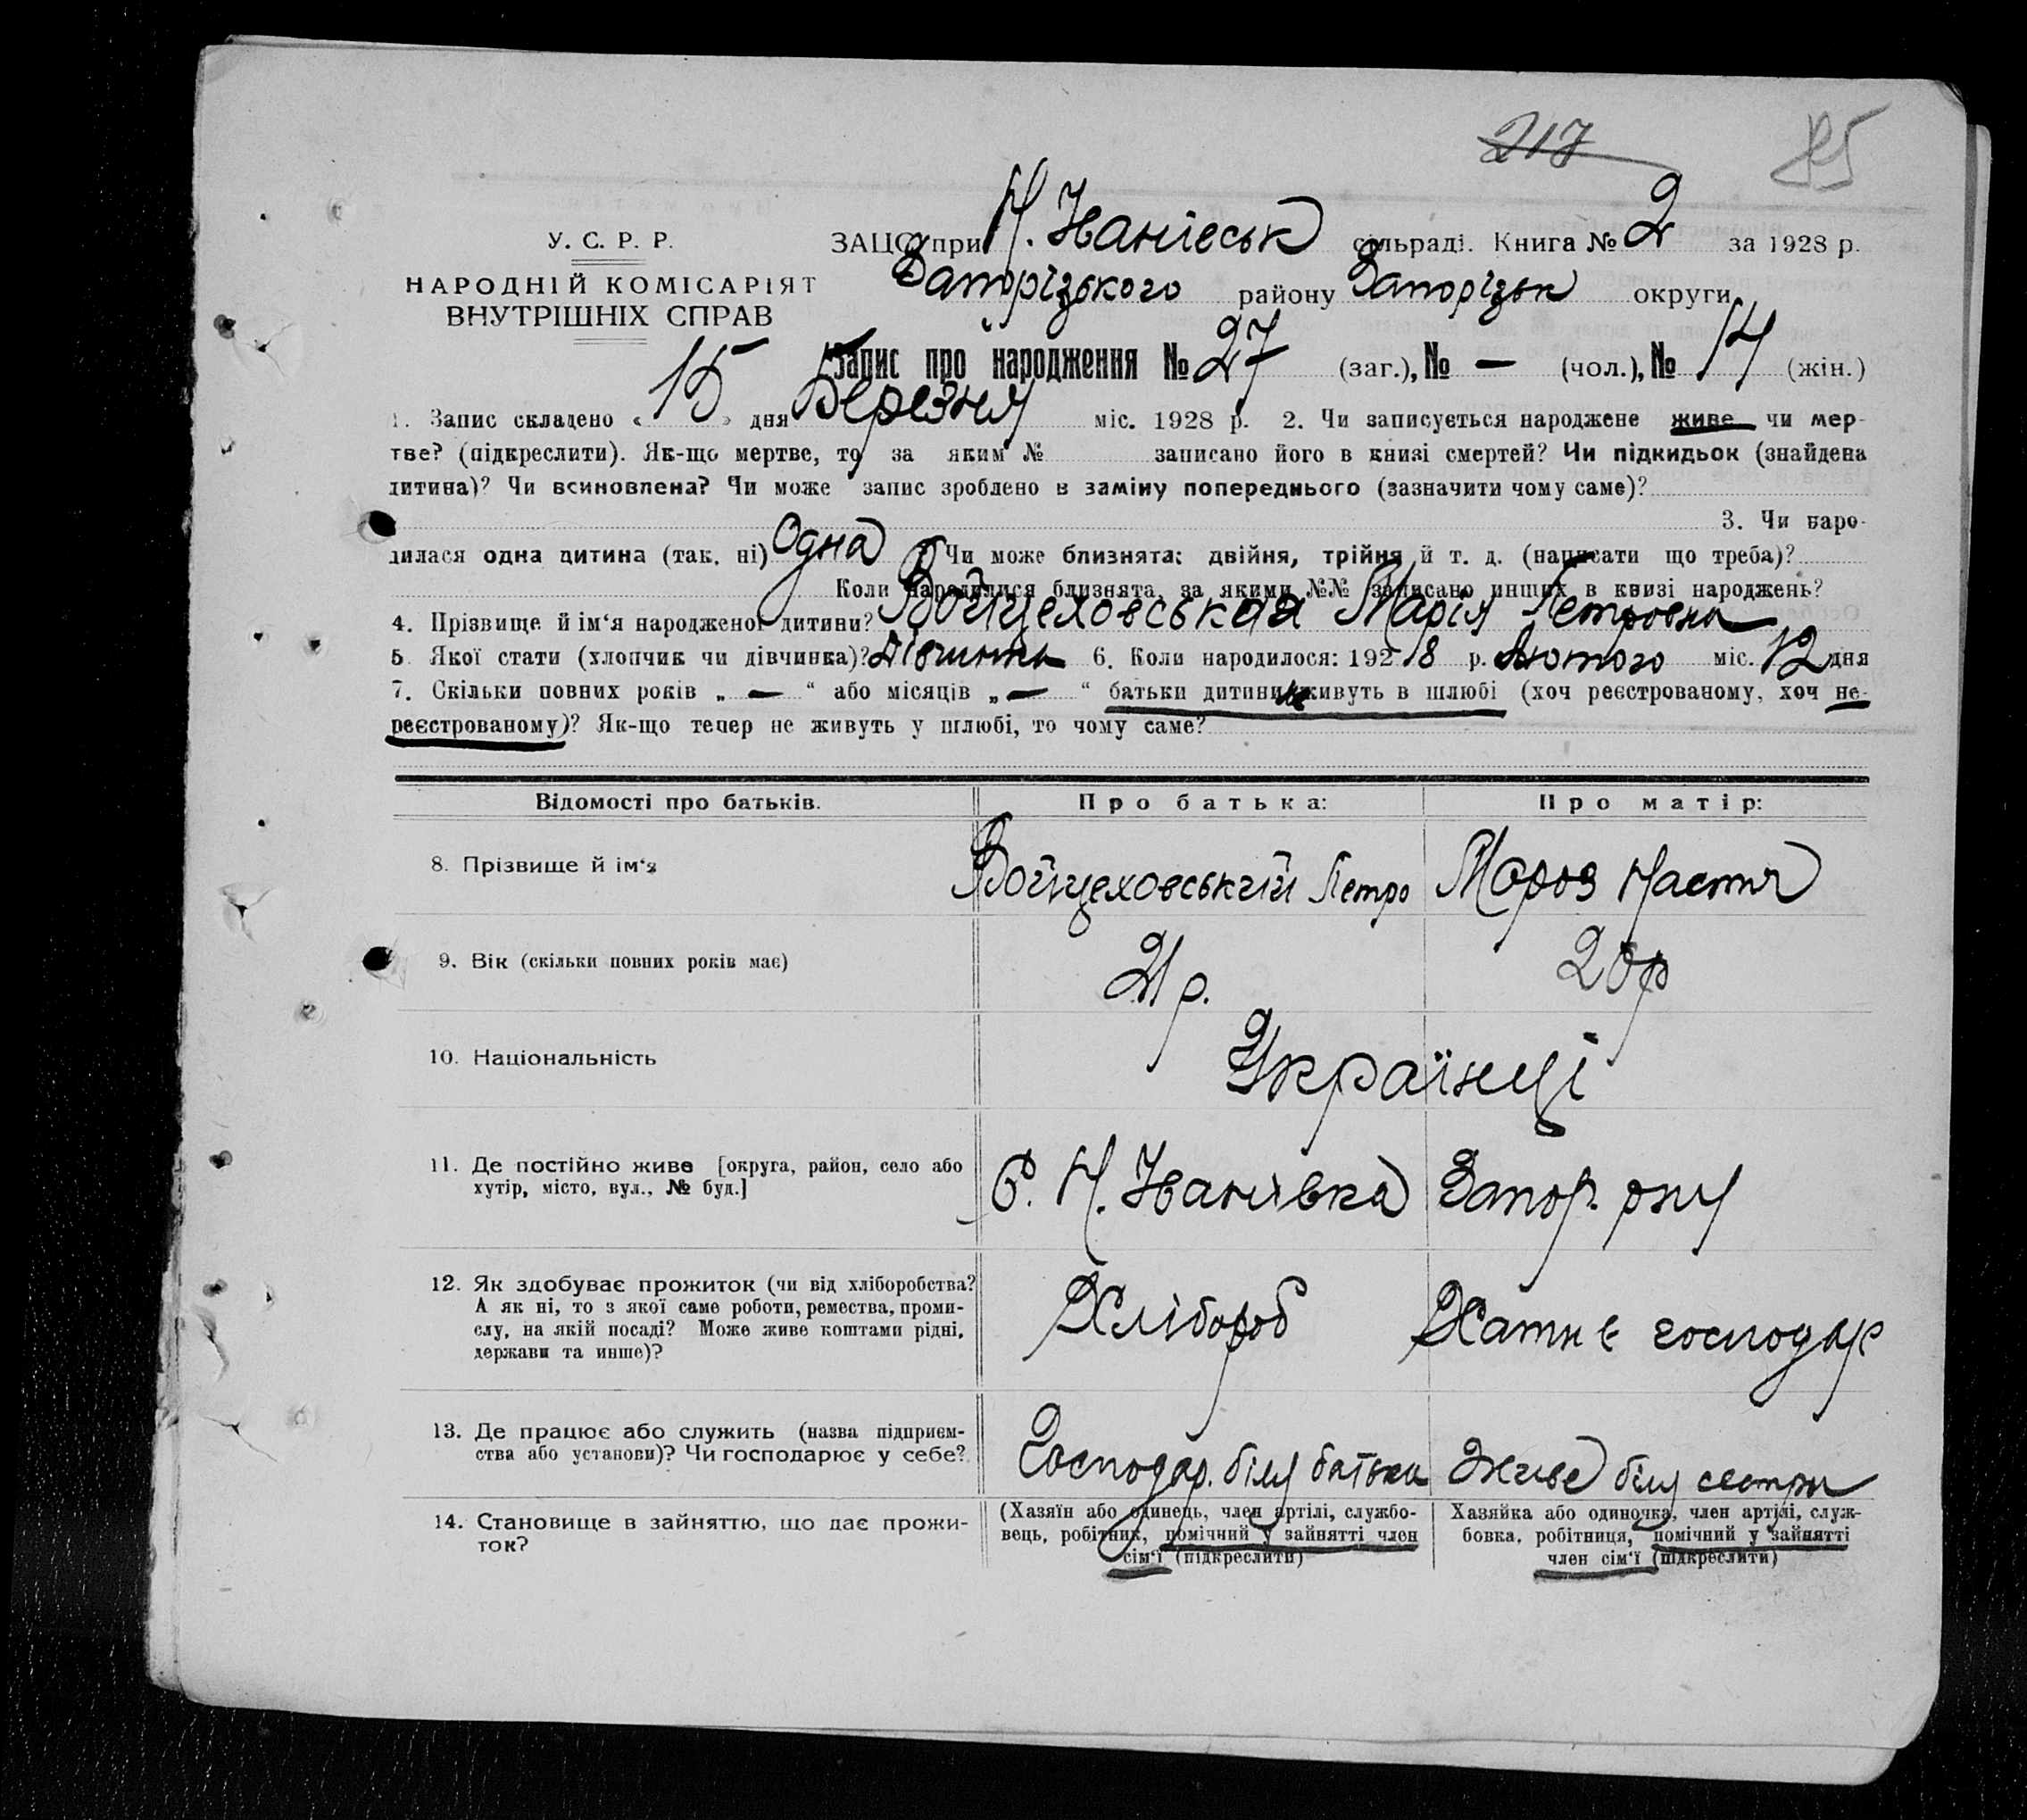 217 85
У. С. Р. Р. ЗАЦС при Н. Іванівськ сільраді. Книга № 2 за 1928 р.
НАРОДНІЙ КОМІСАРІЯТ Запорізького району Запорізьк округи
ВНУТРІШНІХ СПРАВ
Запис про народження № 27 (заг.), № — (чол.), № 14 (жін.)
1. Запис складено « 15 » дня Березня міс. 1928 р. 2. Чи записується народжене живе чи мер-
тве? (підкреслити). Як-що мертве, то за яким № записано його в книзі смертей? Чи підкидьок (знайдена
дитина)? Чи всиновлена? Чи може запис зроблено в заміну попереднього (зазначити чому саме)?
3. Чи наро-
дилася одна дитина (так, ні) Одна Чи може близнята: двійня, трійня й т. д. (написати що треба)?
Коли народилися близнята, за якими №№ записано инших в книзі народжень?
4. Прізвище й ім‘я народженої дитини? Войцеховськая Марія Петровна
5. Якої стати (хлопчик чи дівчинка)? Дівчинка 6. Коли народилося: 1928 р. Лютого міс. 12 дня
7. Скільки повних років „ — “ або місяців „ — “ батьки дитини не живуть в шлюбі (хоч реєстрованому, хоч не-
реєстрованому)? Як-що тепер не живуть у шлюбі, то чому саме?
Відомості про батьків. Про батька: Про матір:
8. Прізвище й ім‘я Войцеховський Петро Мороз Настя
9. Вік (скільки повних років має) 21 р. 20 р
10. Національність Українці
11. Де постійно живе [округа, район, село або
хутір, місто, вул., № буд.] С. Н. Іванівка Запор. рну
12. Як здобуває прожиток (чи від хліборобства?
А як ні, то з якої саме роботи, ремества, проми-
слу, на якій посаді? Може живе коштами рідні,
держави та инше)? Хлібороб Хатнє господар
13. Де працює або служить (назва підприєм-
ства або установи)? Чи господарює у себе? Господар. біля батька Живе біля сестри
14. Становище в зайняттю, що дає прожи-
ток?
(Хазяїн або одинець, член артілі, службо-
вець, робітник, помічний у зайнятті член
сім‘ї (підкреслити)
Хазяйка або одиночка, член артілі, служ-
бовка, робітниця, помічний у зайнятті
член сім‘ї (підкреслити)